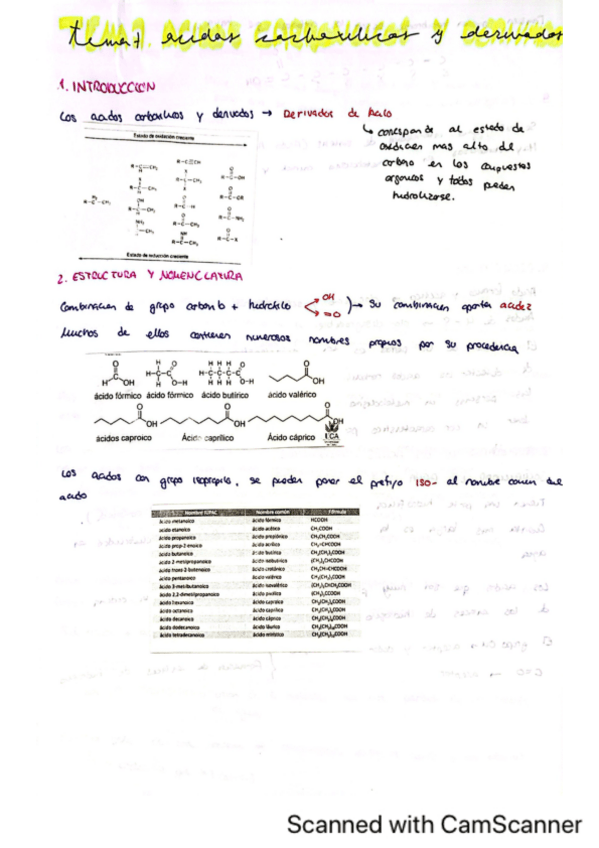 tema 7. acidos carboxilicos y derivados
1. INTRODUCCION
Los acidos carboxilicos y derivados → Derivados de halo
Estado de oxidación creciente
↳ corresponde al estado de
oxidacion mas alto del
carbono en los compuestos
organicos y todos pueden
hidrolizarse.
Estado de reducción creciente
2. ESTRUCTURA Y NOMENCLATURA
Combinacion de grupo carbonilo + hidroxilo OH =O → Su combinacion aporta acidez
Muchos de ellos contienen numerosos nombres propios por su procedencia
ácido fórmico ácido fórmico ácido butírico ácido valérico
ácidos caproico Ácido caprílico Ácido cáprico UCA
Los acidos con grupo isopropilo, se pueden poner el prefijo ISO- al nombre comun del
acido
Nombre IUPAC Nombre común Fórmula
Ácido metanoico ácido fórmico HCOOH
ácido etanoico ácido acético CH3COOH
Ácido propanoico ácido propiónico CH3CH2COOH
Ácido prop-2-enoico ácido acrílico CH2=CHCOOH
Ácido butanoico ácido butírico CH3(CH2)2COOH
Ácido 2-metilpropanoico ácido isobutírico (CH3)2CHCOOH
Ácido trans-2-butenoico ácido crotónico CH3CH=CHCOOH
Ácido pentanoico ácido valérico CH3(CH2)3COOH
Ácido 3-metilbutanoico ácido isovalérico (CH3)2CHCH2COOH
Ácido 2,2-dimetilpropanoico ácido piválico (CH3)3CCOOH
ácido hexanoico ácido caproico CH3(CH2)4COOH
ácido octanoico ácido caprílico CH3(CH2)6COOH
ácido decanoico ácido cáprico CH3(CH2)8COOH
ácido dodecanoico ácido láurico CH3(CH2)10COOH
ácido tetradecanoico ácido mirístico CH3(CH2)12COOH
Scanned with CamScanner